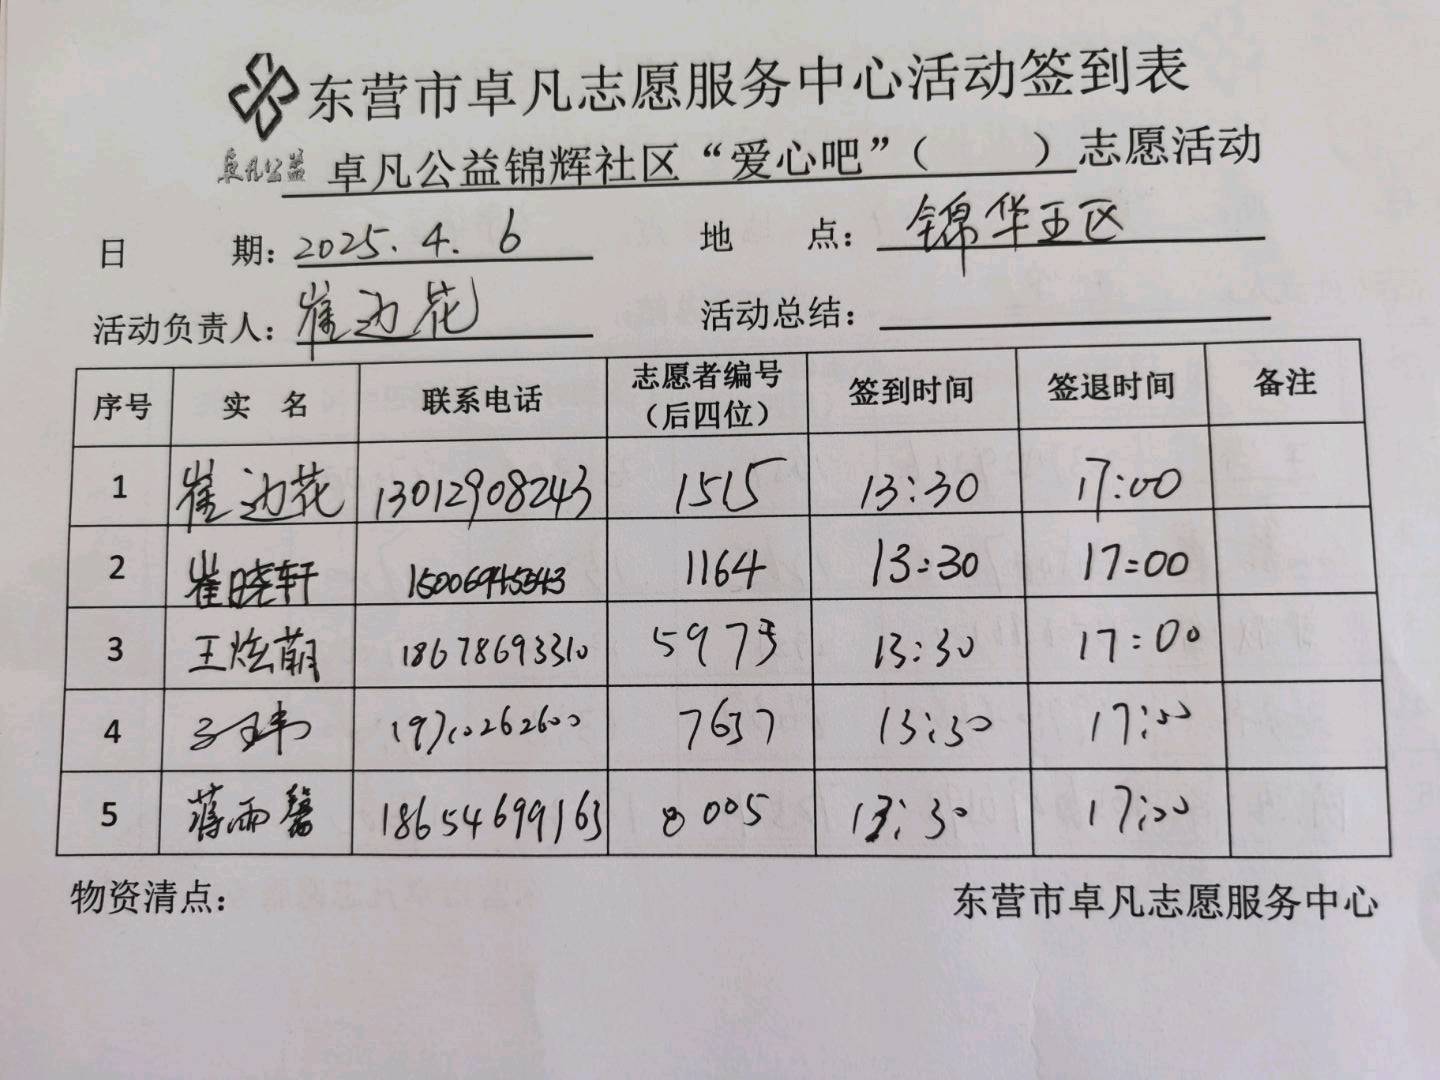 东营市卓凡志愿服务中心活动签到表
卓凡公益 卓凡公益锦辉社区“爱心吧”（ ）志愿活动
日 期：2025.4.6 地 点：锦华五区
活动负责人：崔边花 活动总结：
序号 实 名 联系电话 志愿者编号（后四位） 签到时间 签退时间 备注
1 崔边花 13012908243 1515 13:30 17:00
2 崔晓轩 1164 13:30 17:00
3 王炫萌 18678693310 5975 13:30 17:00
4 7657 13:30 17:00
5 蒋雨馨 18654699163 8005 13:30 17:00
物资清点： 东营市卓凡志愿服务中心